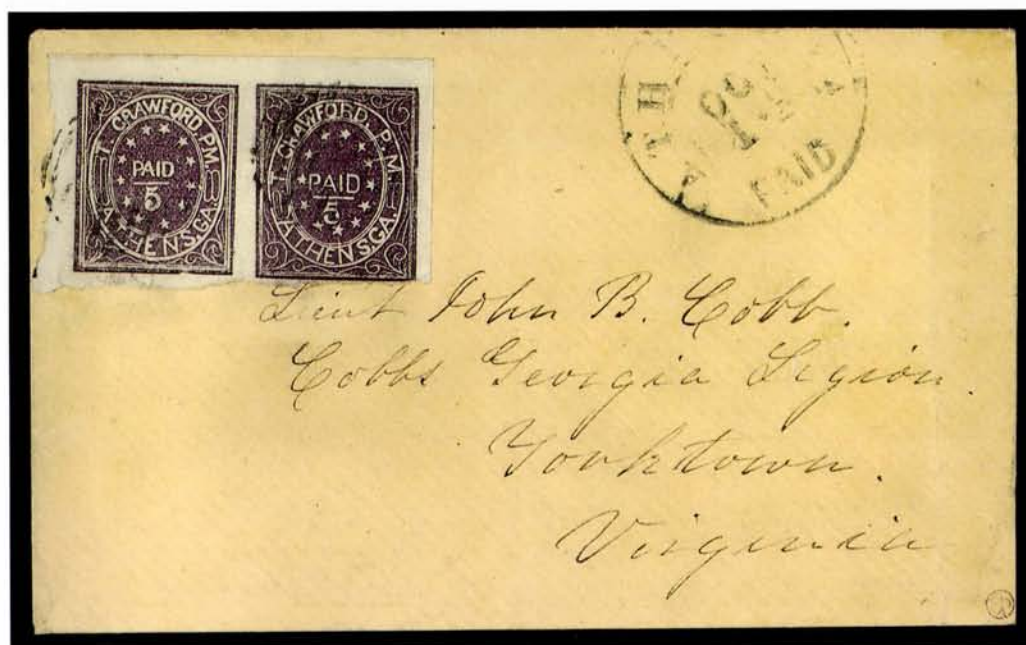 T. CRAWFORD, P.M.
PAID
5
ATHENS, GA.
T. CRAWFORD, P.M.
PAID
5
ATHENS, GA.
ATH
PAID
Lieut John B. Cobb.
Cobbs Georgia Legion.
Yorktown.
Virginia